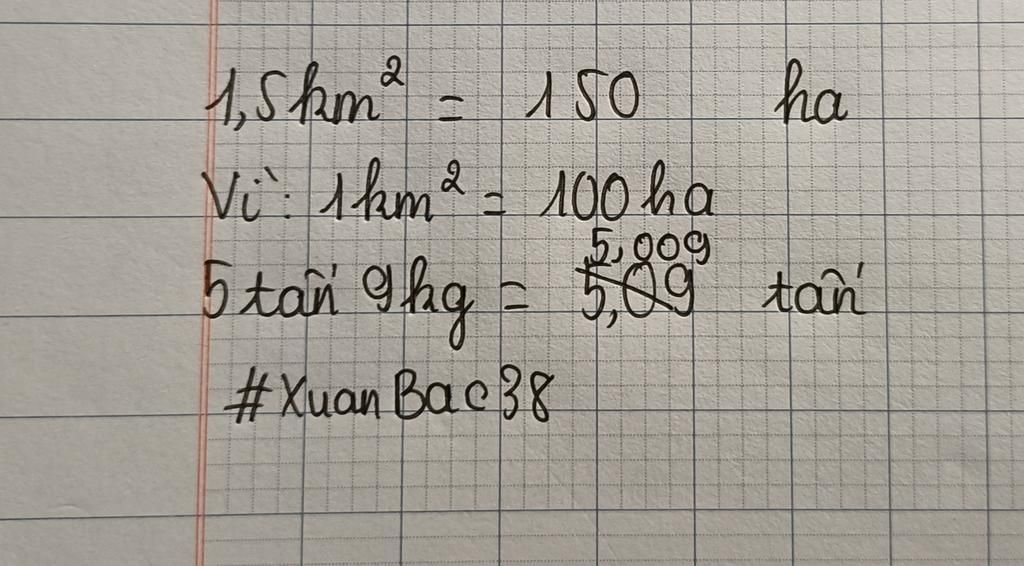 1,5km² = 150 ha
Vì: 1km² = 100ha
5,009
5 tấn 9kg = 5,09 tấn
#XuanBac38